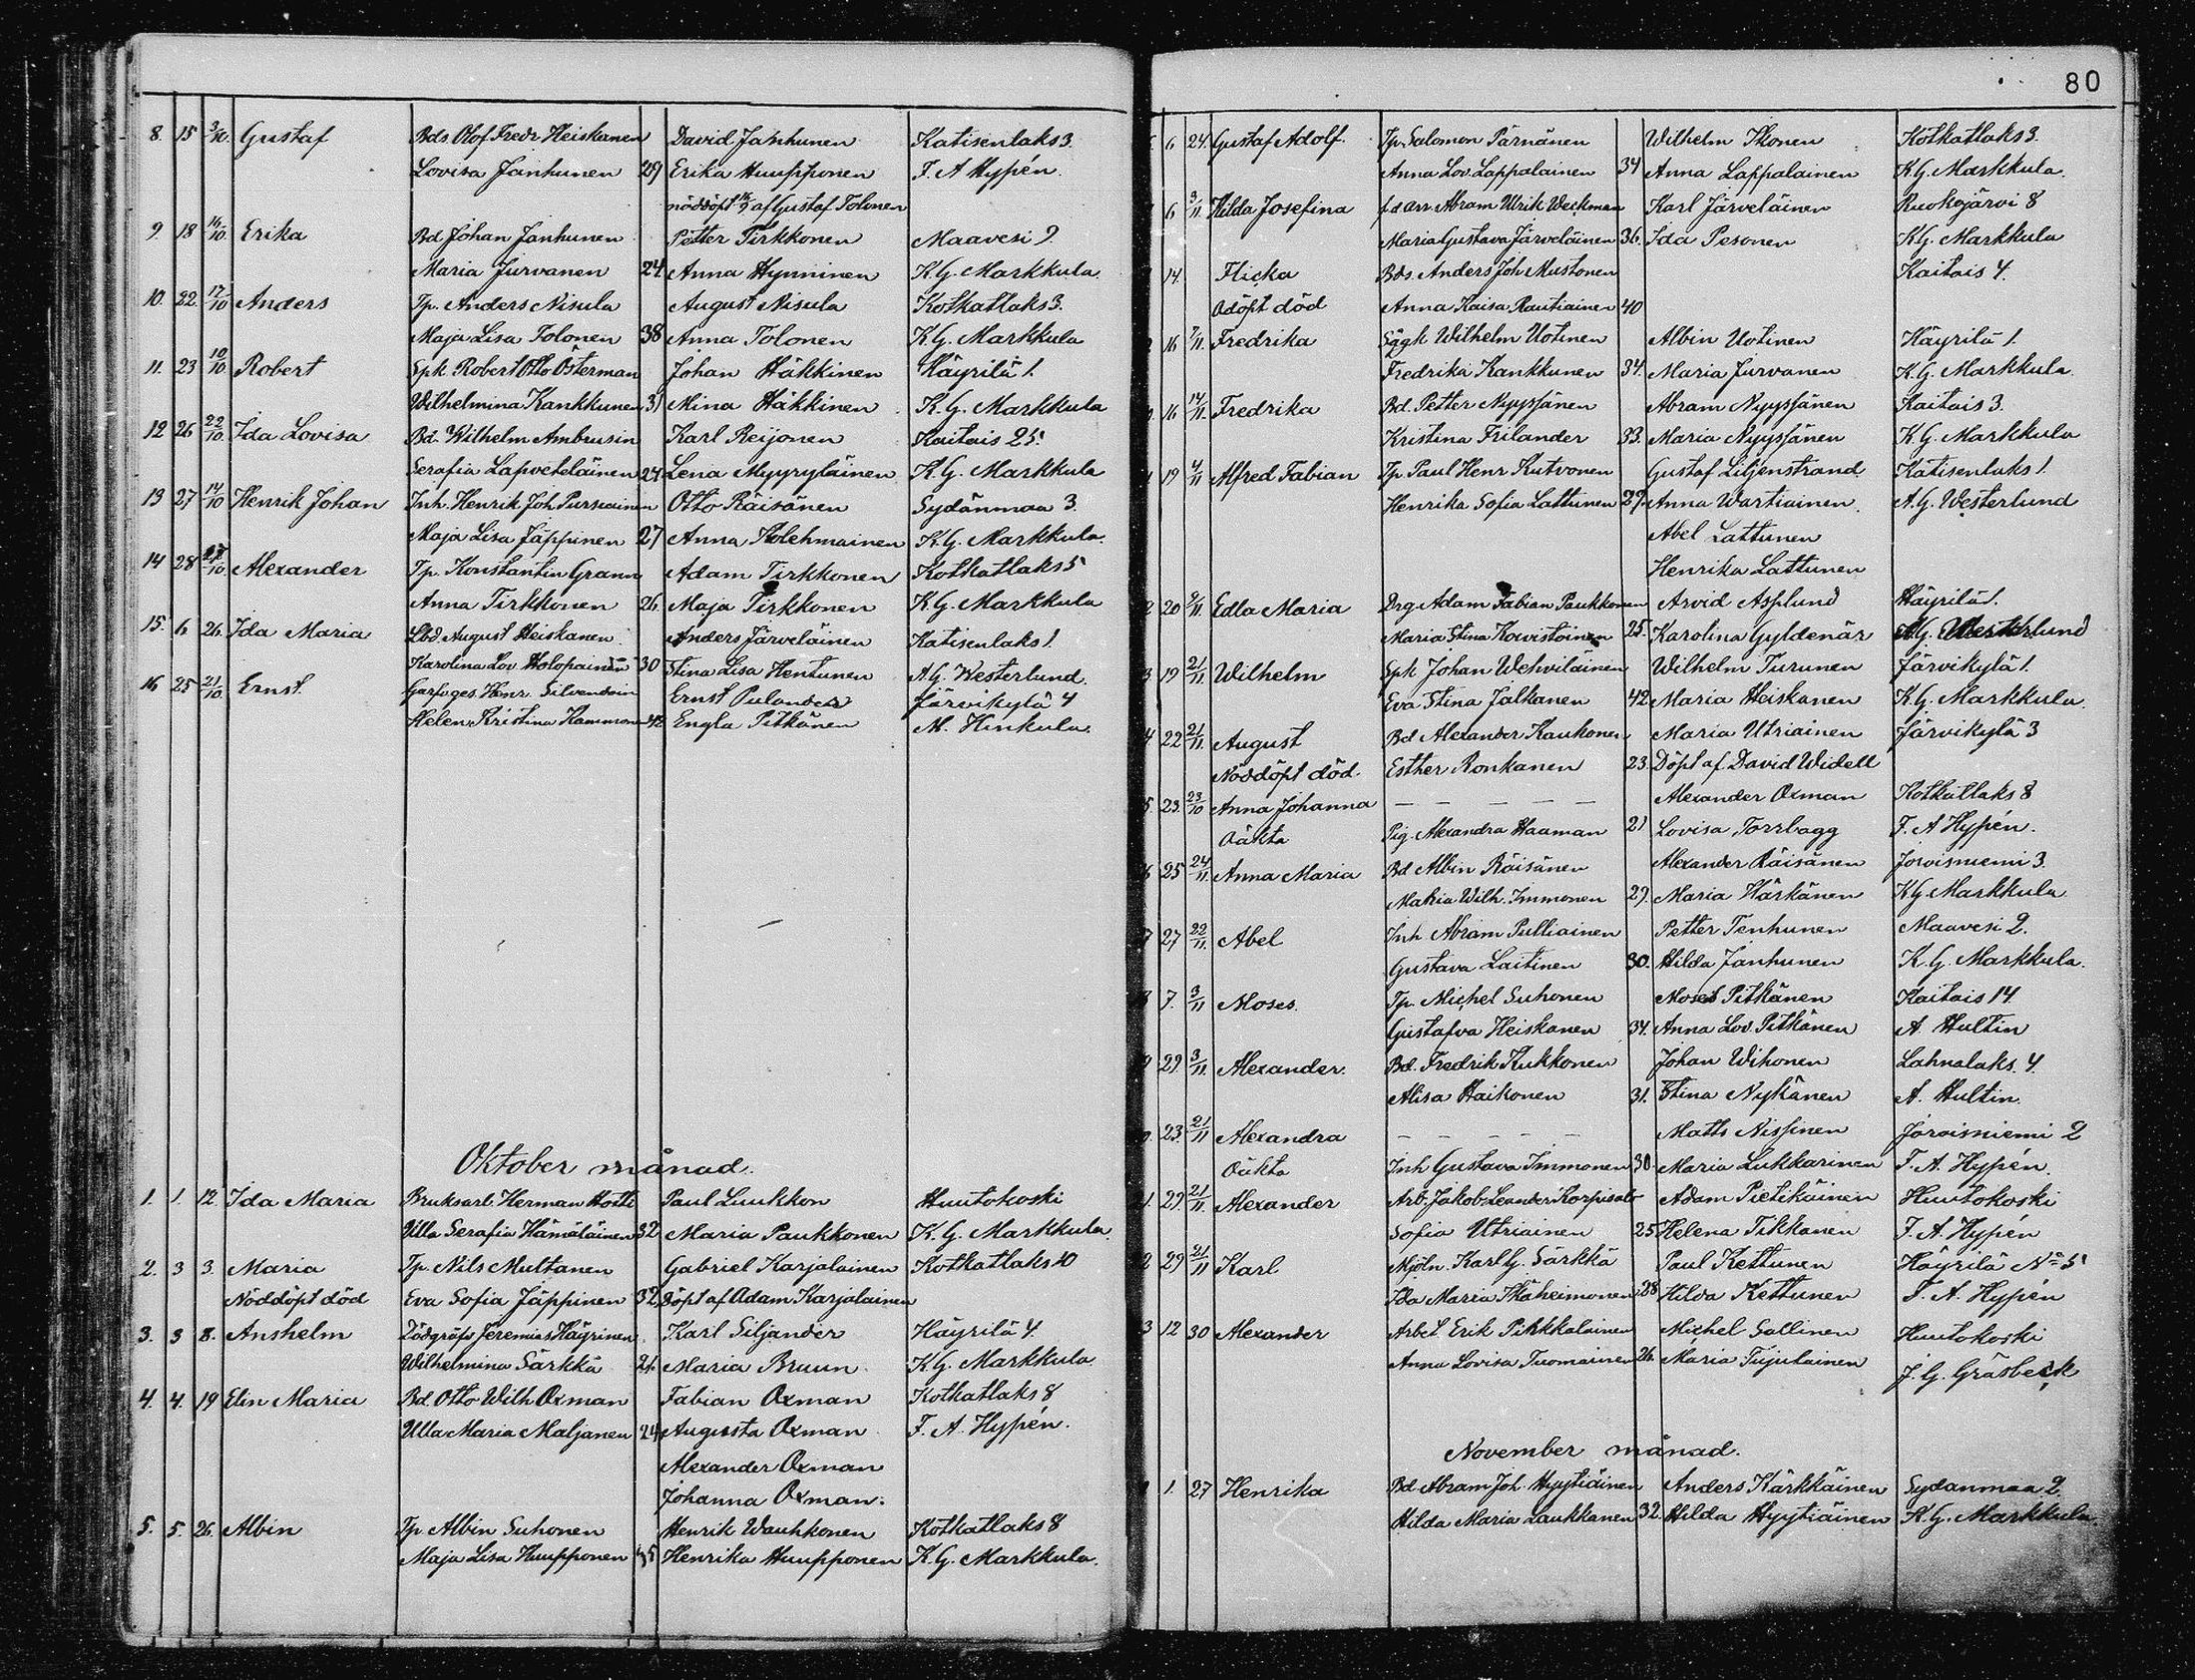 8. 15 3/10. Gustaf Bds. Olof Fredr Heiskanen David Janhunen Katisenlaks 3.
Lovisa Janhunen 29 Erika Huupponen F. A Hypén.
nöddöpt af Gustaf Tolonen
9. 18 16/10. Erika Bd Johan Janhunen Petter Tirkkonen Maavesi 9.
Maria Jurvanen 24 Anna Hynninen K.G. Markkula.
10. 22. 17/10 Anders Tp. Anders Nisula August Nisula Kotkatlaks 3.
Maja Lisa Tolonen 38 Anna Tolonen K.G. Markkula
11. 23 10/10 Robert Spk. Robert Otto Österman Johan Häkkinen Häyrilä 1.
Wilhelmina Kankkunen 31 Mina Häkkinen K.G. Markkula
12 26 22/10. Ida Lovisa Bd. Wilhelm Ambrusin Karl Reijonen Kaitais 25.
Serafia Lapveteläinen 24 Lena Myyryläinen K.G. Markkula
13 27 14/10 Henrik Johan Inh. Henrik Joh Pursiainen Otto Räisänen Sydänmaa 3.
Maja Lisa Jäppinen 27 Anna Kolehmainen K.G. Markkula.
14 28 /10. Alexander Tp. Konstantin Grann Adam Tirkkonen Kotkatlaks 5
Anna Tirkkonen 26. Maja Tirkkonen K.G. Markkula
15. 6 26. Ida Maria Lbd. August Heiskanen Anders Järveläinen Katisenlaks 1.
Karolina Lov Holopainen 30 Stina Lisa Hentunen A.G. Westerlund.
16 25 21/10. Ernst. Garfvoges. Henr. Silvendoin Ernst Pulander Järvikylä 4
Helena Kristina Kammonen 42 Engla Pitkänen M. Hinkula.
Oktober månad.
1. 1. 12. Ida Maria Bruksarb. Herman Hotti Paul Luukkon Huutokoski
Ulla Serafia Hämäläinen 32 Maria Paukkonen K.G. Markkula.
2. 3 3. Maria Tp. Nils Multanen Gabriel Karjalainen Kotkatlaks 10
Nöddöpt död Eva Sofia Jäppinen 32. Döpt af Adam Karjalainen
3. 3 8. Anshelm Dödgräfv Jeremias Häyrinen Karl Siljander Häyrilä 4.
Wilhelmina Särkkä 21. Maria Bruun K.G. Markkula
4. 4. 19 Elin Maria Bd. Otto Wilh Oxman Fabian Oxman Kotkatlaks 8
Ulla Maria Maljanen 24 Augusta Oxman F. A. Hypén.
Alexander Oxman
Johanna Oxman.
5. 5. 26. Albin Tp Albin Suhonen Henrik Wauhkonen Kotkatlaks 8
Maja Lisa Huupponen 35 Henrika Huupponen K.G. Markkula.
80
6 24. Gustaf Adolf. Tp. Salomon Pärnänen Wilhelm Ikonen Kotkatlaks 3.
Anna Lov. Lappalainen 34 Anna Lappalainen K.G. Markkula.
6 3/11. Hilda Josefina f.d. arr. Abram Ulrik Weckman Karl Järveläinen Ruokojärvi 8
Maria Gustava Järveläinen 36. Ida Pesonen K.G. Markkula
14. Flicka Bds. Anders Joh Mustonen Kaitais 4.
Odöpt död Anna Kaisa Rautiainen 40
16 7/11. Fredrika Sågk Wilhelm Uotinen Albin Uotinen Häyrilä 1.
Fredrika Kankkunen 34. Maria Jurvanen K.G. Markkula.
16 14/11. Fredrika Bd. Petter Nyyssänen Abram Nyyssänen Kaitais 3.
Kristina Frilander 33. Maria Nyyssänen K.G. Markkula
19 4/11 Alfred Fabian Tp Paul Henr Kutvonen Gustaf Liljenstrand Katisenlaks 1.
Henrika Sofia Lattunen 29. Anna Wartiainen A.G. Westerlund
Abel Lattunen
Henrika Lattunen
20 9/11. Edla Maria Drg Adam Fabian Paukkonen Arvid Asplund Häyrilä 1.
Maria Stina Koivistoinen 25. Karolina Gyldenär A.G. Westerlund
19 21/11 Wilhelm Spk Johan Wehviläinen Wilhelm Turunen Järvikylä 1.
Eva Stina Jalkanen 42 Maria Heiskanen K.G. Markkula.
22 21/11. August Bd Alexander Kauhonen Maria Utriainen Järvikylä 3
Nöddöpt död. Esther Ronkanen 23. Döpt af David Widell
23. 23/10 Anna Johanna — — — — — Alexander Oxman Kotkatlaks 8
Oäkta Pig. Alexandra Haaman 21 Lovisa Torrbagg F. A Hypén.
25 24/11. Anna Maria Bd Albin Räisänen Alexander Räisänen Jorvisniemi 3.
Maria Wilh. Immonen 29. Maria Härkänen K.G. Markkula
27 22/11. Abel Inh Abram Pulliainen Petter Tenhunen Maavesi 2.
Gustava Laitinen 30. Hilda Janhunen K.G. Markkula.
7. 3/11 Moses. Tp. Michel Suhonen Moses Pitkänen Kaitais 14.
Gustafva Heiskanen 34. Anna Lov. Pitkänen A. Hultin
29. 3/11. Alexander. Bd. Fredrik Kukkonen Johan Wihonen Lahnalaks. 4.
Alisa Haikonen 31. Stina Nykänen A. Hultin.
23. 21/11 Alexandra — — — — — Matts Nissinen Jorvisniemi 2
Oäkta Inh Gustava Immonen 30. Maria Lukkarinen F. A. Hypén.
29. 21/11 Alexander Arb. Jakob Leander Korpisalo Adam Pietikäinen Huutokoski
Sofia Utriainen 25 Helena Tikkanen F. A. Hypén
29 21/11 Karl Mjöln. Karl G. Särkkä Paul Kettunen Häyrilä No 5
Ida Maria Ikäheimonen 28 Hilda Kettunen F. A. Hypén
12 30 Alexander Arbet Erik Pikkalainen Michel Sallinen Huutokoski
Anna Lovisa Tuomainen 26. Maria Tujulainen J. G. Gräsbeck
November månad.
1. 27 Henrika Bd Abram Joh. Hyytiäinen Anders Kärkkäinen Sydanmaa 2.
Hilda Maria Laukkanen 32. Hilda Hyytiäinen K.G. Markkula.